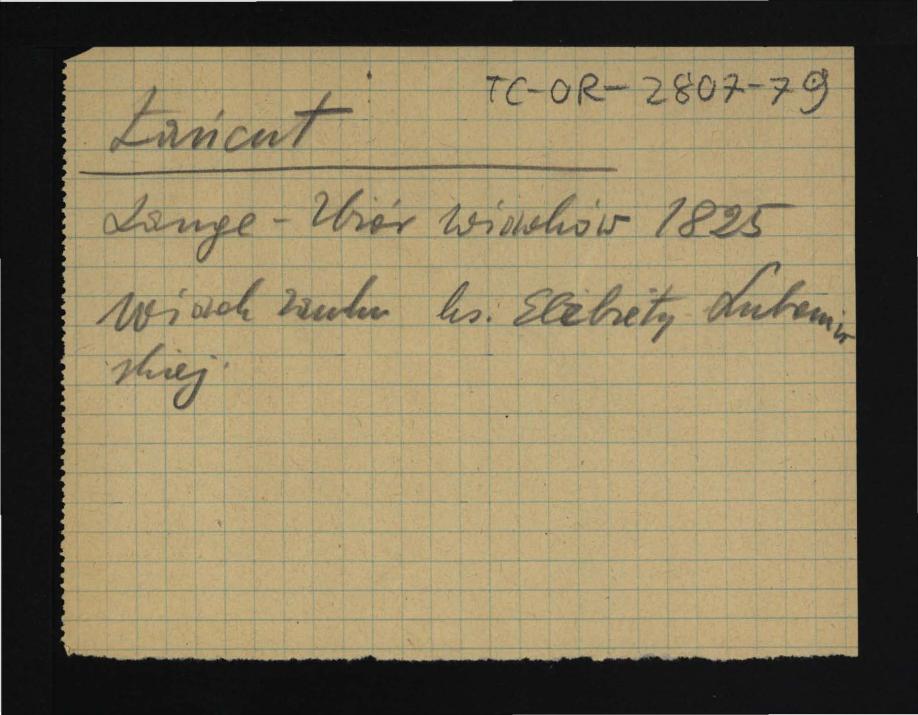 TC-OR-2807-79
Łańcut
Lange - Zbiór widoków 1825
Widok zamku ks. Elżbiety Lubomir
skiej.